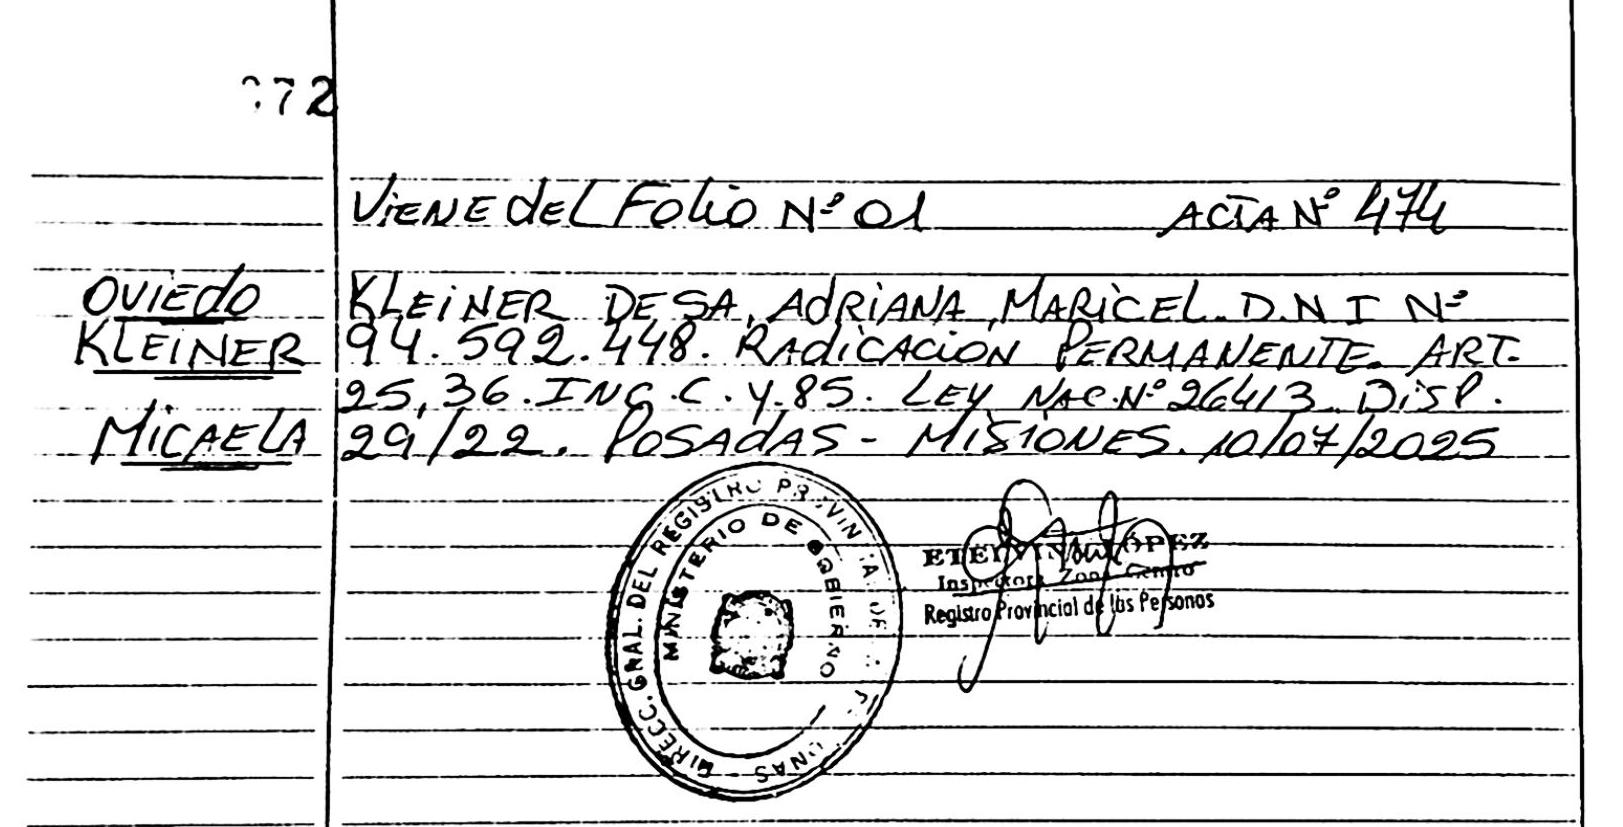 72
VIENE del Folio Nº 01 ACTA Nº 474
OVIEDO KLEINER DE SA, ADRIANA, MARICEL. D.N I Nº
KLEINER 94.592.448. RADICACION PERMANENTE. ART.
25, 36. INC. C. y. 85. LEY NAC. Nº 26413. DISP.
MICAELA 29/22. POSADAS - MISIONES. 10/07/2025
DIRECC. GRAL. DEL REGISTRO PROVIN
MINISTERIO DE GOBIERNO
LÓPEZ
Inspectora Zona Centro
Registro Provincial de las Personas